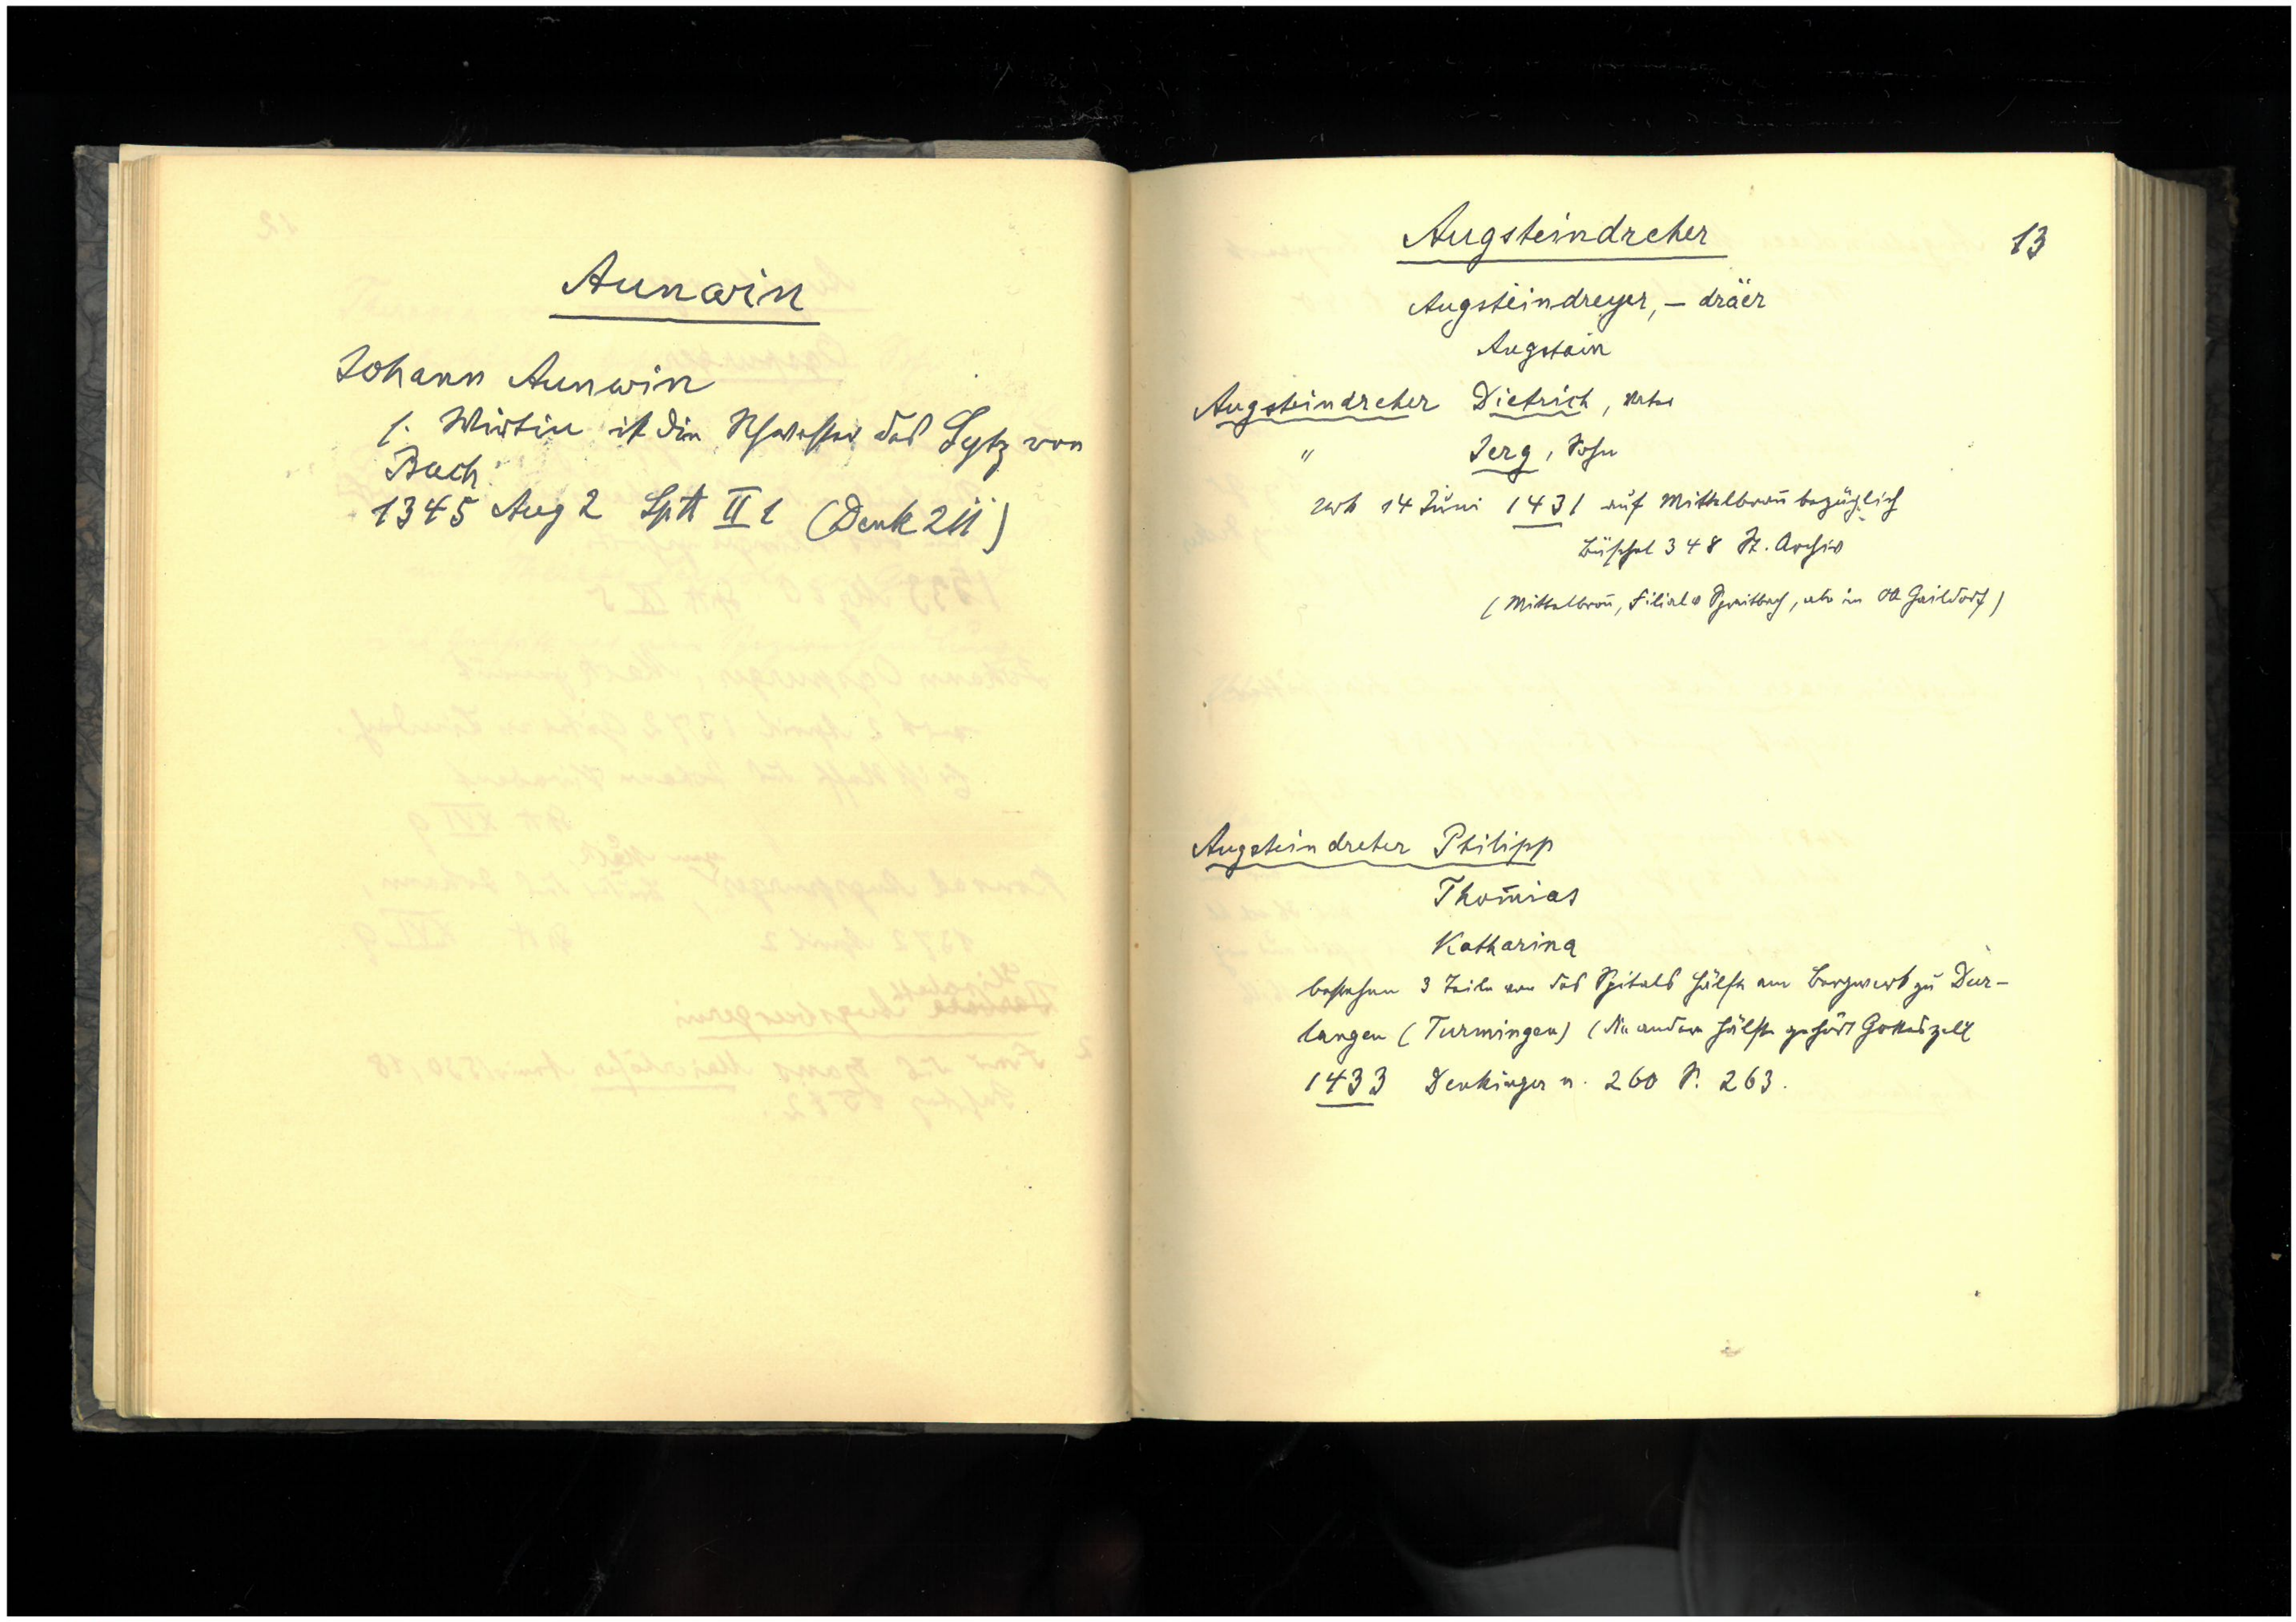 Aunwin
Johann Aunwin
s. Wirtin ist die Schwester des Sytz von
Bach.
1345 Aug 2 Sptt II 1 (Denk 211)
Augsteindreher
13
Augsteindreyer, – dräer
Augstain
Augsteindreher Dietrich, Vater
" Jerg, Sohn
14 Juni 1431 auf Mittelbroñ bezüglich
Büschel 348 St. Archiv
(Mittelbroñ, Filiale Spraitbach, aber im OA Gaildorf)
Augsteindreher Philipp
Thom̄as
Katharina
bestehen 3 Teile von des Spitals Hälfte am Bergwerk zu Dur-
langen (Turmingen) (die andere Hälfte gehört Gotteszell
1433 Denkinger n. 260 S. 263.